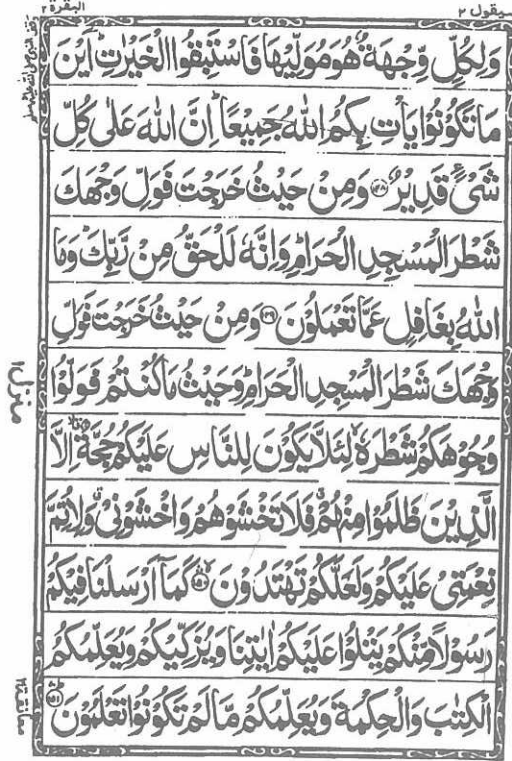 سيقول ٢
البقرة ٢
وَلِكُلٍّ وِّجْهَةٌ هُوَ مُوَلِّيْهَا فَاسْتَبِقُوا الْخَيْرٰتِ ؕ اَيْنَ
مَا تَكُوْنُوْا يَاْتِ بِكُمُ اللّٰهُ جَمِيْعًا ؕ اِنَّ اللّٰهَ عَلٰى كُلِّ
شَىْءٍ قَدِيْرٌ ﴿١٤٨﴾ وَمِنْ حَيْثُ خَرَجْتَ فَوَلِّ وَجْهَكَ
شَطْرَ الْمَسْجِدِ الْحَرَامِ ؕ وَاِنَّهٗ لَلْحَقُّ مِنْ رَّبِّكَ ؕ وَمَا
اللّٰهُ بِغَافِلٍ عَمَّا تَعْمَلُوْنَ ﴿١٤٩﴾ وَمِنْ حَيْثُ خَرَجْتَ فَوَلِّ
وَجْهَكَ شَطْرَ الْمَسْجِدِ الْحَرَامِ ؕ وَحَيْثُ مَا كُنْتُمْ فَوَلُّوْا
وُجُوْهَكُمْ شَطْرَهٗ ۙ لِئَلَّا يَكُوْنَ لِلنَّاسِ عَلَيْكُمْ حُجَّةٌ ۙ اِلَّا
الَّذِيْنَ ظَلَمُوْا مِنْهُمْ ۗ فَلَا تَخْشَوْهُمْ وَاخْشَوْنِىْ ۗ وَلِاُتِمَّ
نِعْمَتِىْ عَلَيْكُمْ وَلَعَلَّكُمْ تَهْتَدُوْنَ ﴿١٥٠﴾ كَمَاۤ اَرْسَلْنَا فِيْكُمْ
رَسُوْلًا مِّنْكُمْ يَتْلُوْا عَلَيْكُمْ اٰيٰتِنَا وَيُزَكِّيْكُمْ وَيُعَلِّمُكُمُ
الْكِتٰبَ وَالْحِكْمَةَ وَيُعَلِّمُكُمْ مَّا لَمْ تَكُوْنُوْا تَعْلَمُوْنَ ﴿١٥١﴾
منزل ١